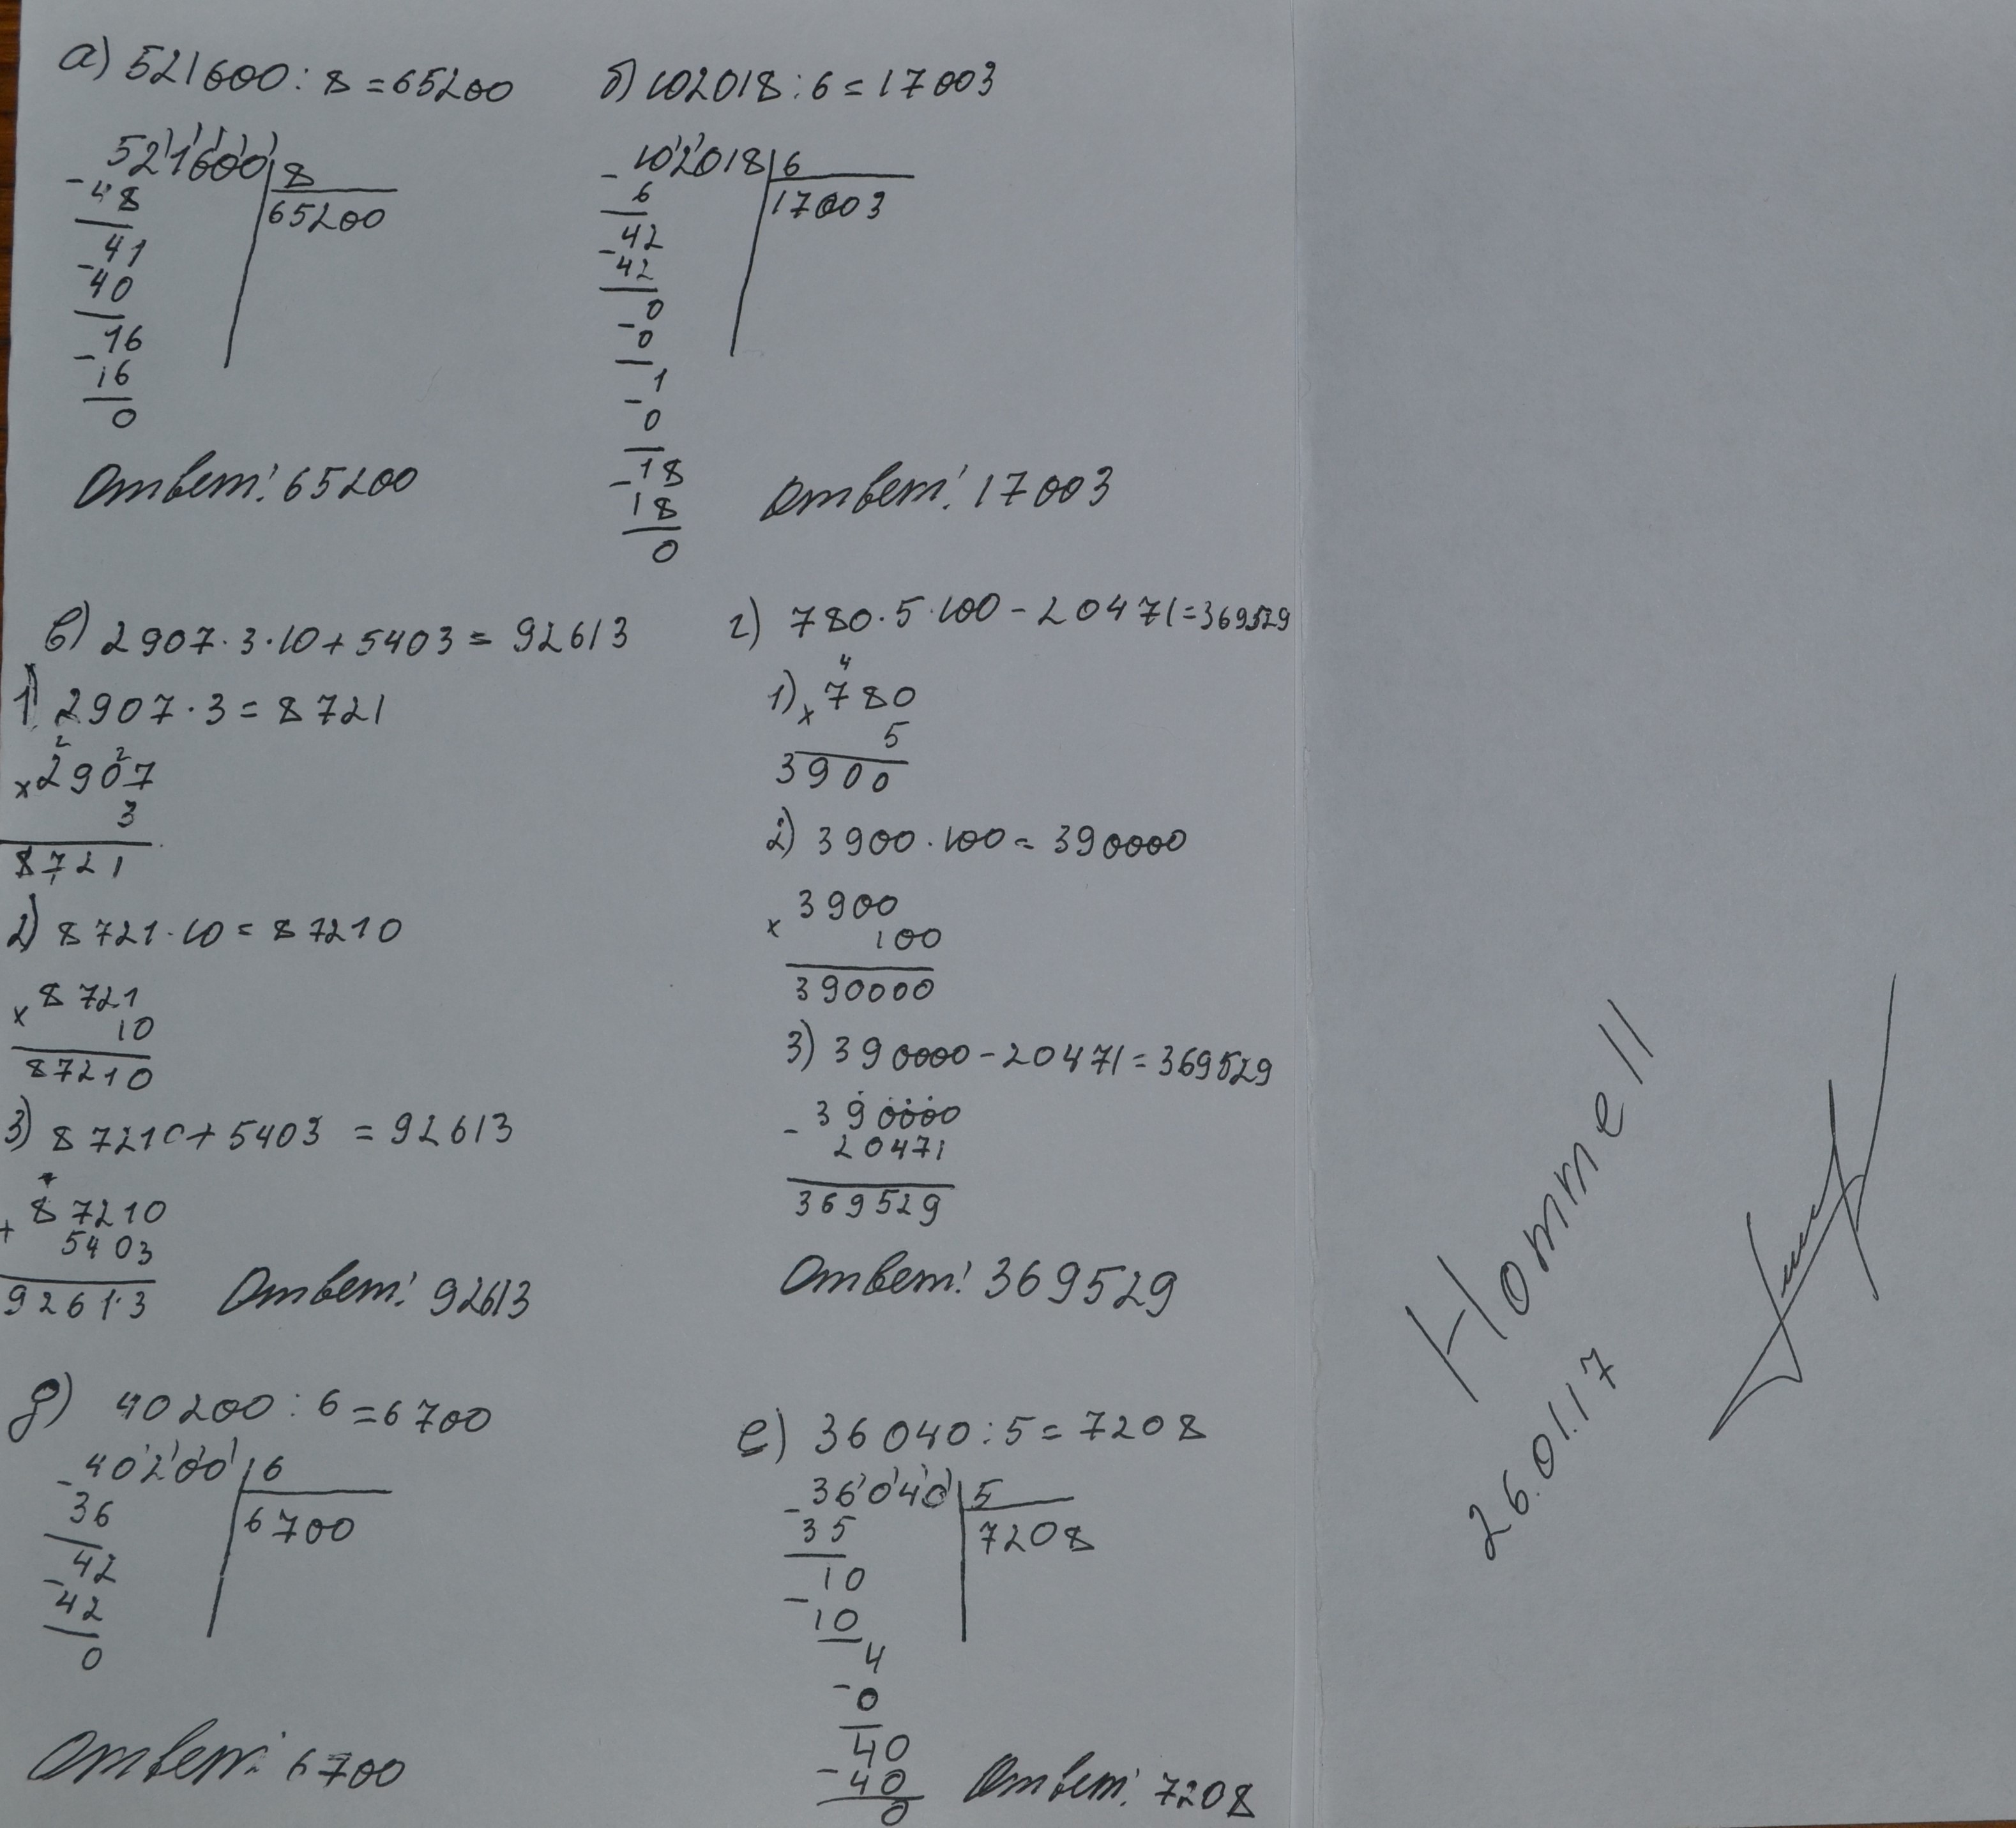 а) 521600 : 8 = 65200
521600 8
- 48 65200
41
- 40
16
- 16
0
Ответ: 65200
б) 102018 : 6 = 17003
- 102018 6
6 17003
- 42
42
0
- 0
1
- 0
- 18
18
0
Ответ: 17003
в) 2907 · 3 · 10 + 5403 = 92613
1) 2907 · 3 = 8721
2 2
x 2907
3
8721
2) 8721 · 10 = 87210
x 8721
10
87210
3) 87210 + 5403 = 92613
+ 87210
5403
92613
Ответ: 92613
г) 780 · 5 · 100 - 20471 = 369529
4
1) x 780
5
3900
2) 3900 · 100 = 390000
x 3900
100
390000
3) 390000 - 20471 = 369529
- 390000
20471
369529
Ответ: 369529
д) 40200 : 6 = 6700
- 40200 6
36 6700
- 42
42
0
Ответ: 6700
е) 36040 : 5 = 7208
- 36040 5
35 7208
10
- 10
4
- 0
40
- 40
0
Ответ: 7208
Homme ll
26.01.17